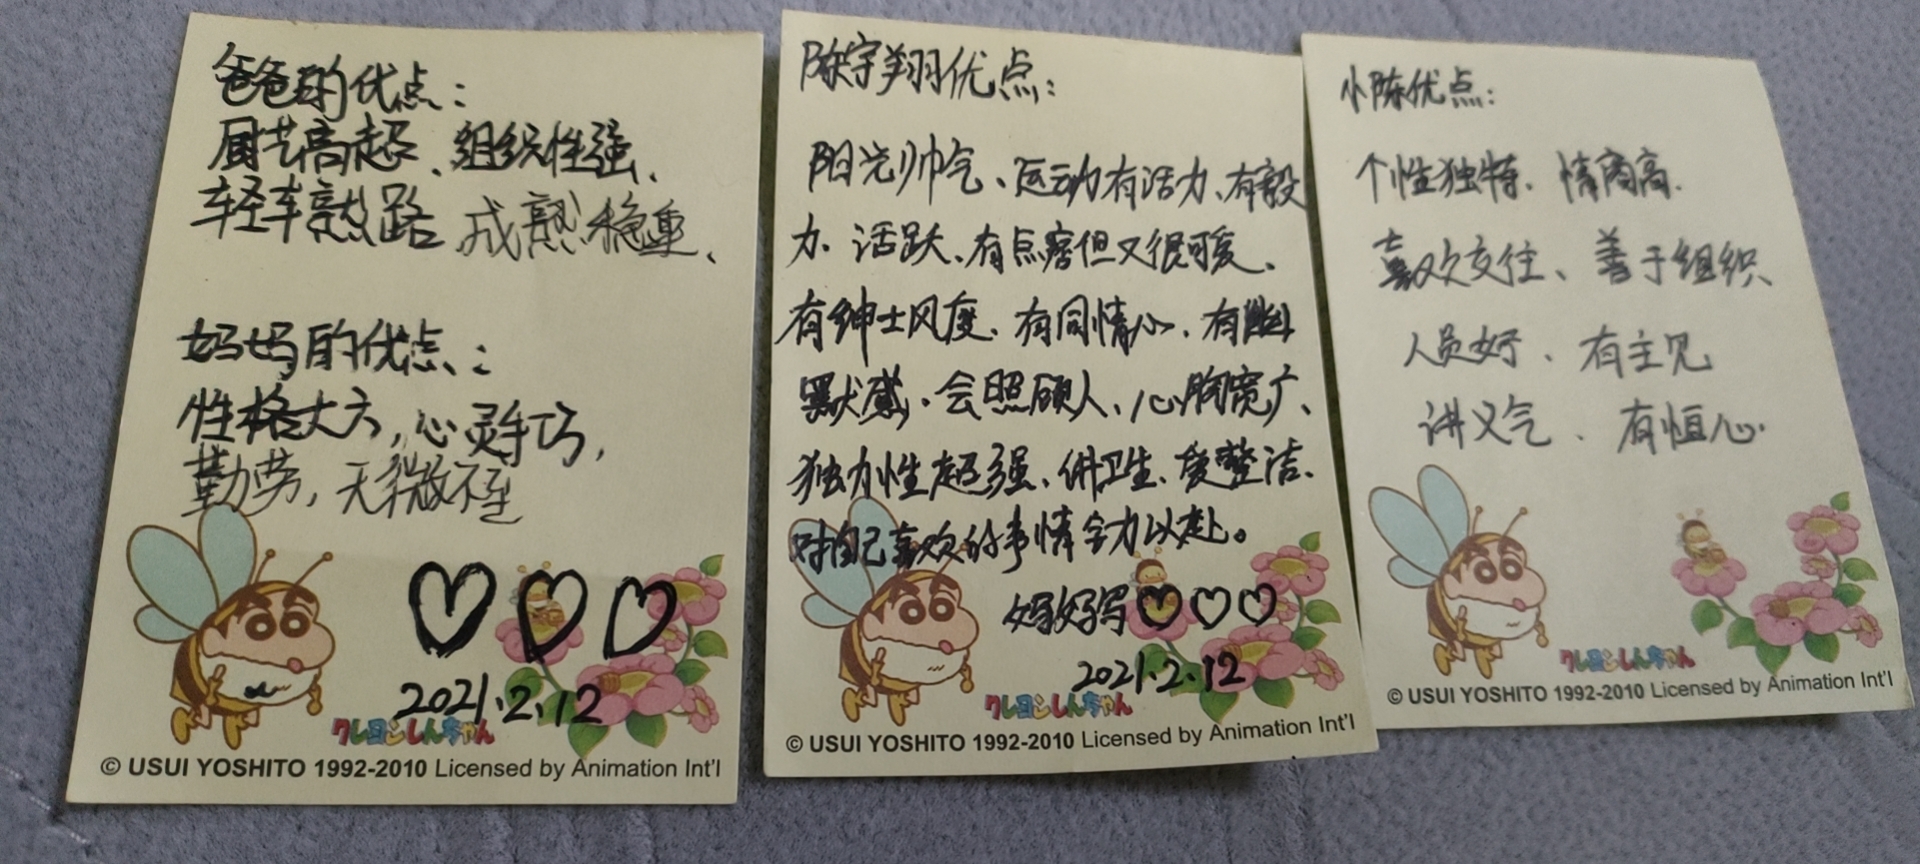 爸爸的优点：
厨艺高超、组织性强、
轻车熟路 成熟稳重、
妈妈的优点：
性格大方，心灵手巧，
勤劳，无微不至
2021.2.12
クレヨンしんちゃん
© USUI YOSHITO 1992-2010 Licensed by Animation Int'l
陈宇翔优点：
阳光帅气、运动有活力、有毅
力、活跃、有点窘但又很可爱、
有绅士风度、有同情心、有幽
默感、会照顾人、心胸宽广、
独力性超强、讲卫生、爱整洁、
对自己喜欢的事情全力以赴。
妈妈写
2021.2.12
クレヨンしんちゃん
© USUI YOSHITO 1992-2010 Licensed by Animation Int'l
小陈优点：
个性独特、情商高、
喜欢交往、善于组织
人员好、有主见
讲义气、有恒心
クレヨンしんちゃん
© USUI YOSHITO 1992-2010 Licensed by Animation Int'l